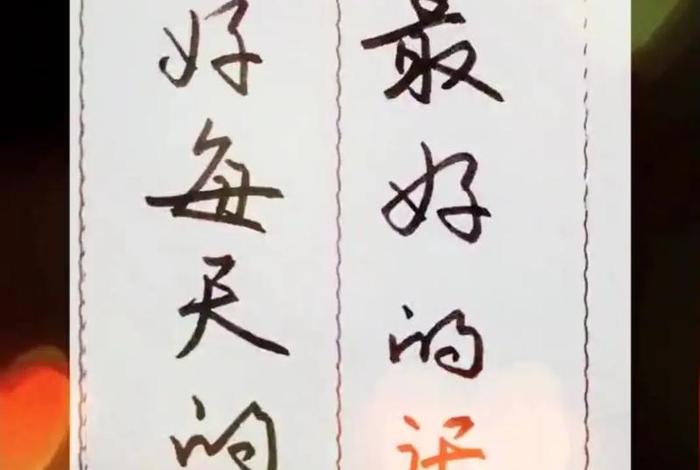 最好的
好每天的